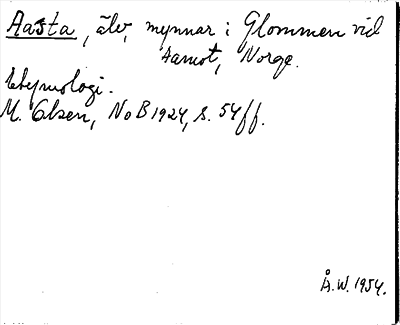 Aasta, älv, mynnar i Glommen vid
Aamot, Norge.
Etymologi.
M. Olsen, NoB 1924, s. 54ff.
Å.W. 1954.